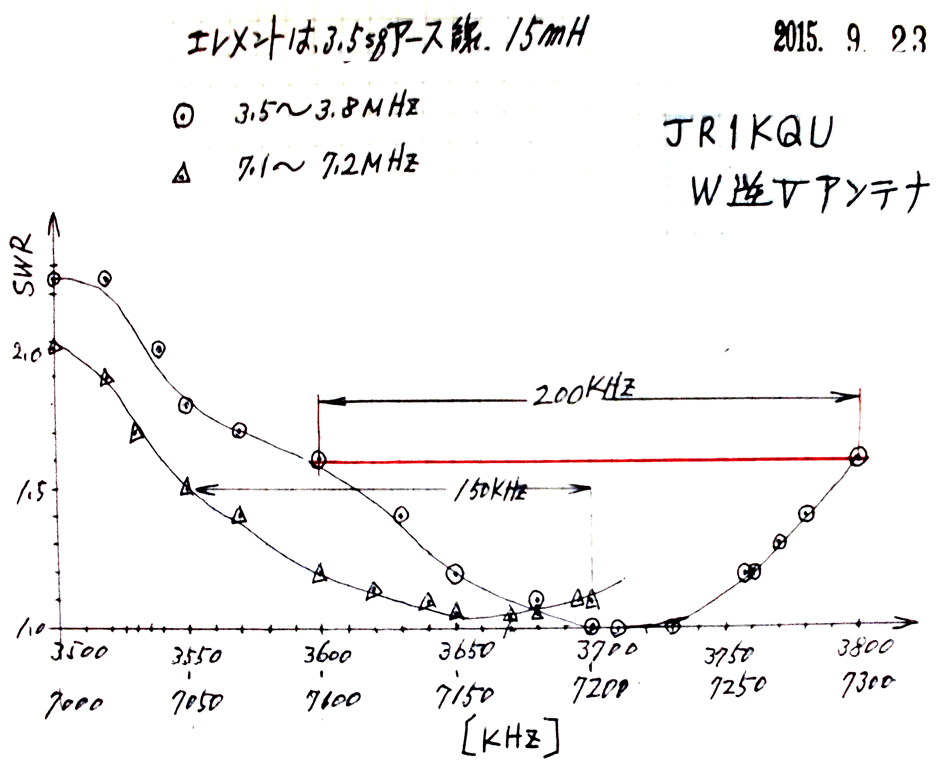 エレメントは、3.5sqアース線. 15mH
2015. 9. 23
3.5〜3.8MHz
7.1〜7.2MHz
JR1KQU
W逆Vアンテナ
SWR
2.0
200KHz
1.5
150KHz
1.0
3500 3550 3600 3650 3700 3750 3800
7000 7050 7100 7150 7200 7250 7300
[KHz]